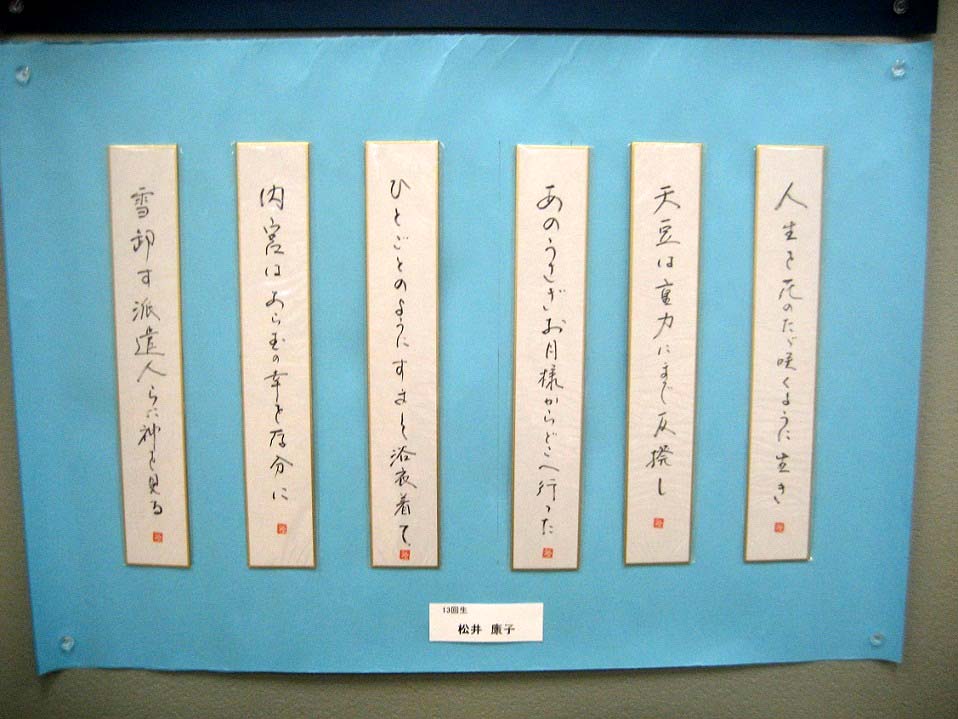 人生を花のたゞ咲くように生き
天豆は重力にまで反撥し
あのうさぎお月様からどこへ行った
ひとごとのようにすまして浴衣着て
内宮はあら玉の幸を存分に
雪卸す派遣人らに神を見る
13回生
松井 康子